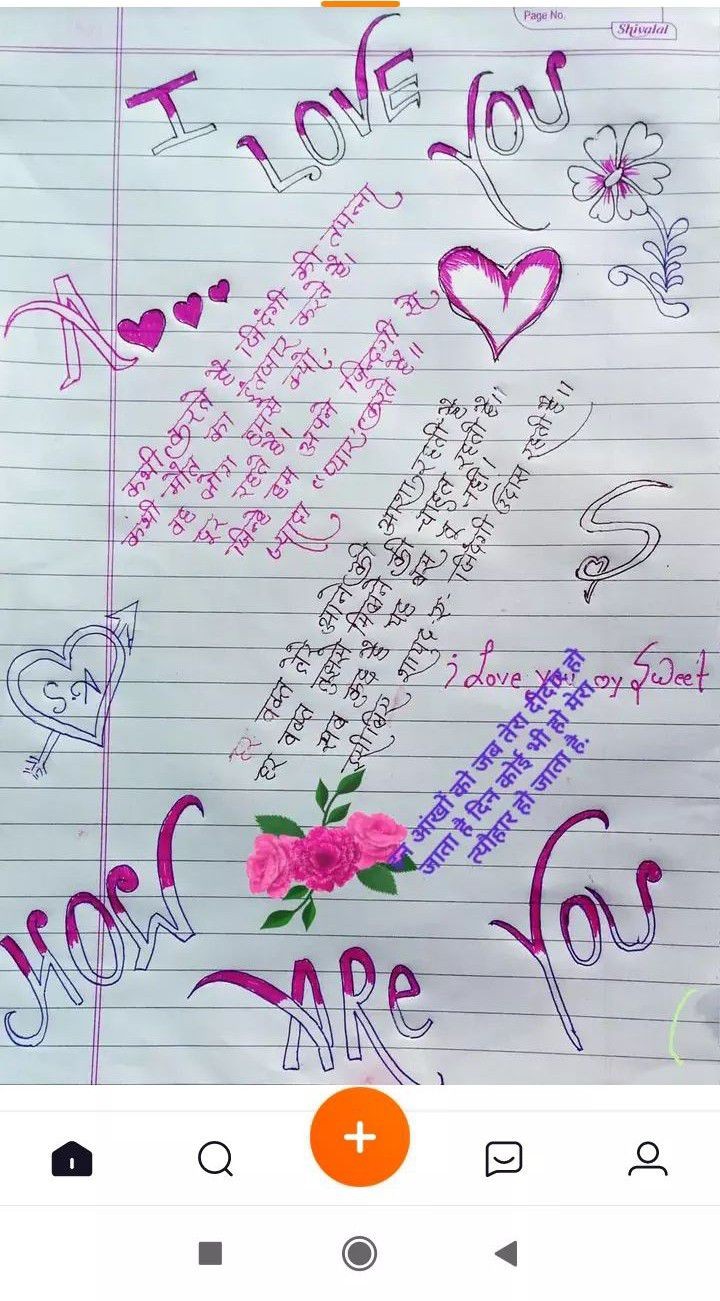 Page No.
Shivalal
I LOVE YOU
K
कभी करते है जिदंगी की तमन्ना
कभी मौत का इंतजार करते है।
वह हमसे क्यो,
दूर रहते है।
जिन्हे हम अपने जिन्दगी से
ज्यादा "प्यार" करते है॥
हर वक्त तेरे आने की आशा रहती है
हर वक्त तुझसे मिलने की चाहत रहती है।।
सब कुछ है यह बस तू नही।
इसीलिए शायद जिंदगी उदास रहती है॥
S
K.S
i Love you my Sweet
इन आंखों को जब तेरा दीदार हो
जाता है दिन कोई भी हो मेरा
त्यौहार हो जाता है.
HOW ARe YOU